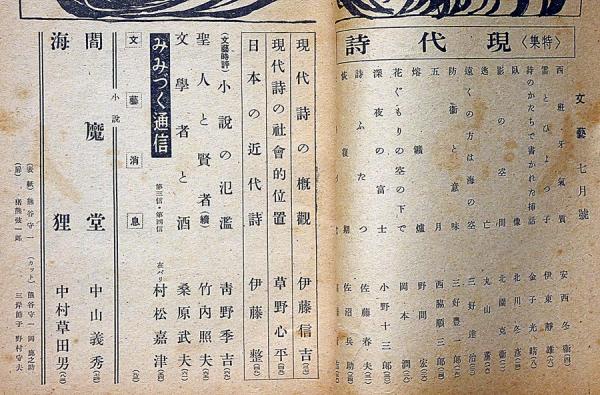 文藝 七月號
現代詩〈特集〉
西班牙氣質 安西冬衞
雲とひよつ子 伊東靜雄
詩のかたちで書かれた挿話 金子光晴
臥像 北川冬彦
影の空間 北園克衞
逃亡 丸山薫
遠くの方は海の空 三好達治
防衞と意味 三好豊一郎
五月 西脇順三郎
熔鑛爐 野間宏
花ぐもりの空の下で 岡本潤
深夜の富士 小野十三郎
詩ふたつ 佐藤春夫
佐沼兵助
現代詩の概觀 伊藤信吉
現代詩の社會的位置 草野心平
日本の近代詩 伊藤整
(文藝時評) 小說の氾濫 靑野季吉
聖人と賢者 (續) 竹內照夫
文學者と酒 桑原武夫
みみづく通信 第三信・第四信 在パリ 村松嘉津
文藝消息
小說
閻魔堂 中山義秀
海狸 中村草田男
(表紙) 熊谷守一
(扉) 猪熊弦一郎
(カット) 熊谷守一 岡鹿之助
三岸節子 野村守夫